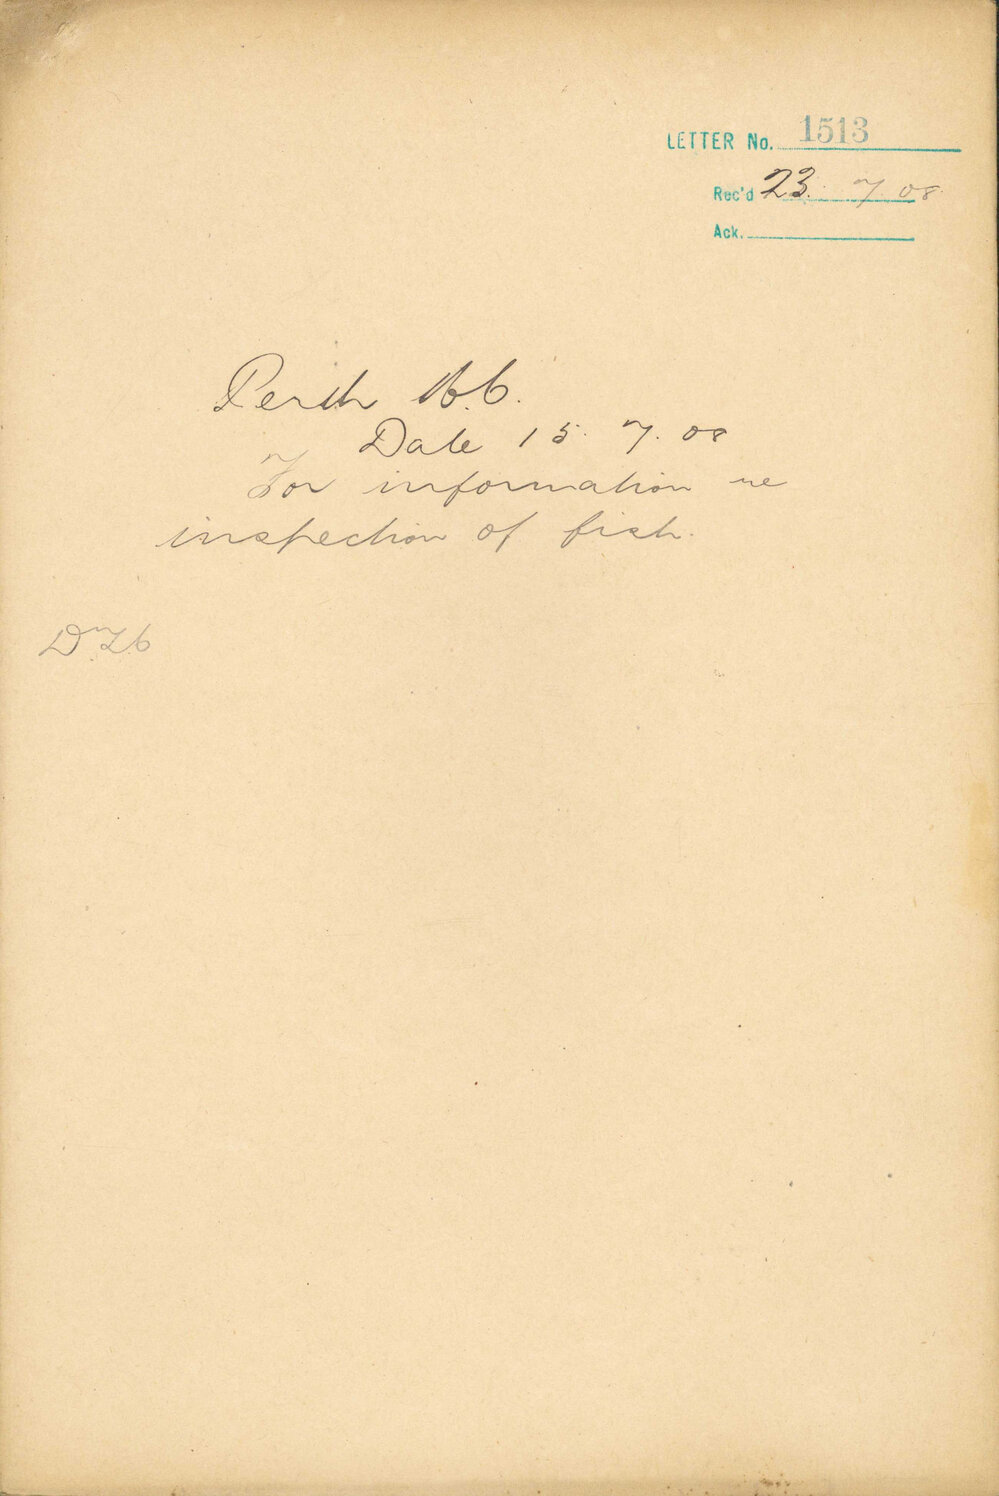 LETTER No. 1513
Rec'd 23. 7. 08.
Ack.
Perth
Date 15. 7. 08
For information re
inspection of fish.